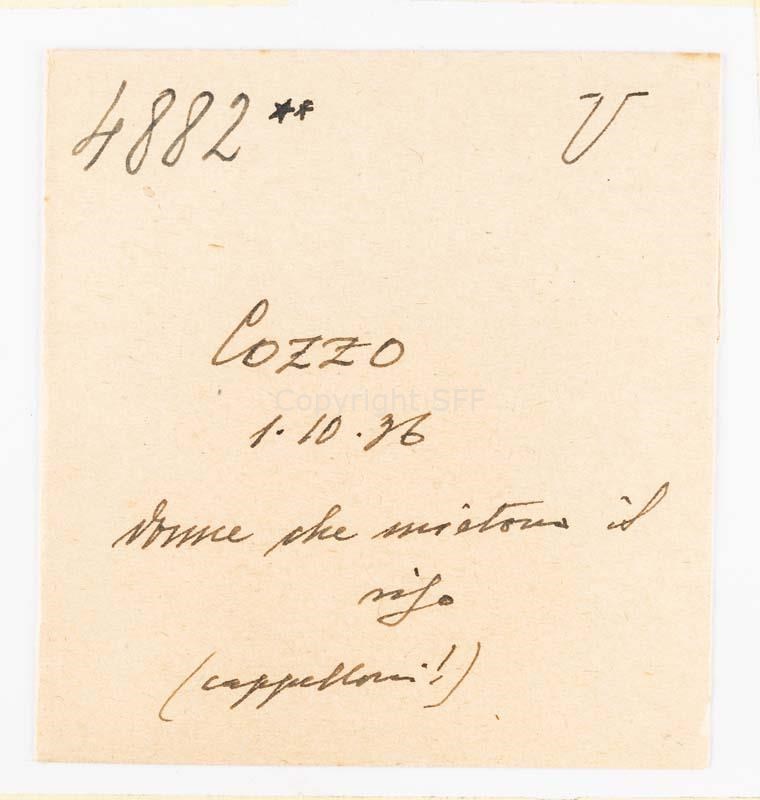 4882** V
Cozzo
Copyright SFF
1.10.36
donne che mietono il
riso
(cappelloni!)